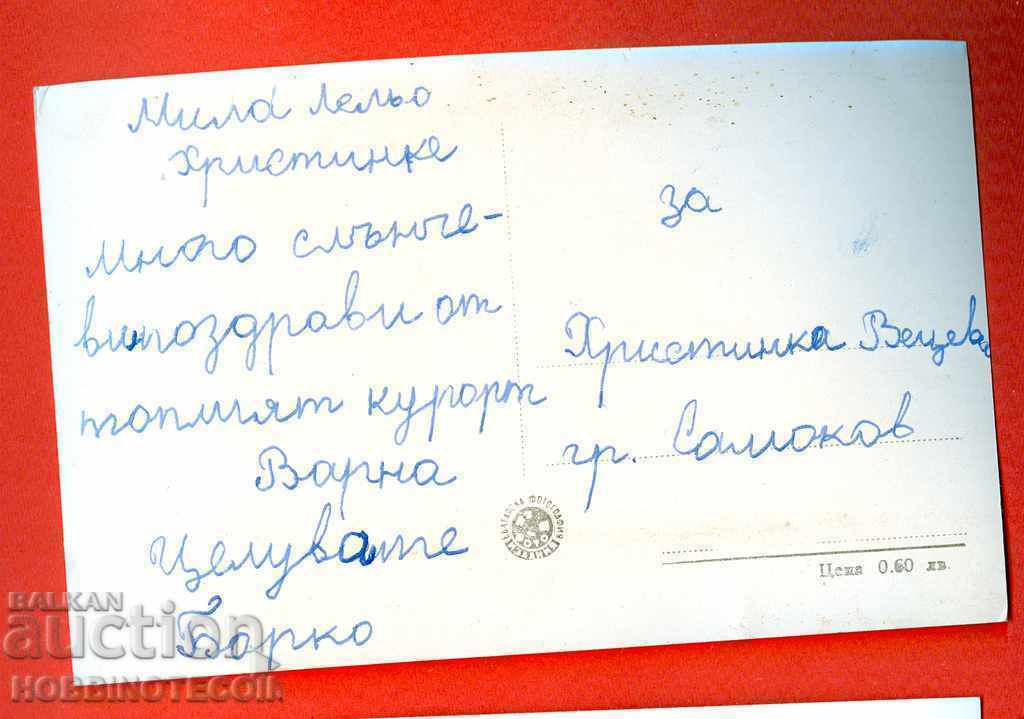 Мила Лельо
Христинке
Много слънче-
ви поздрави от
топлият курорт
Варна
Целувате
Борко
за
Христинка Вецева
гр. Самоков
БЪЛГАРСКА ФОТОГРАФИЯ
Цена 0.60 лв.
BALKAN
auction
HOBBINOTECOIL